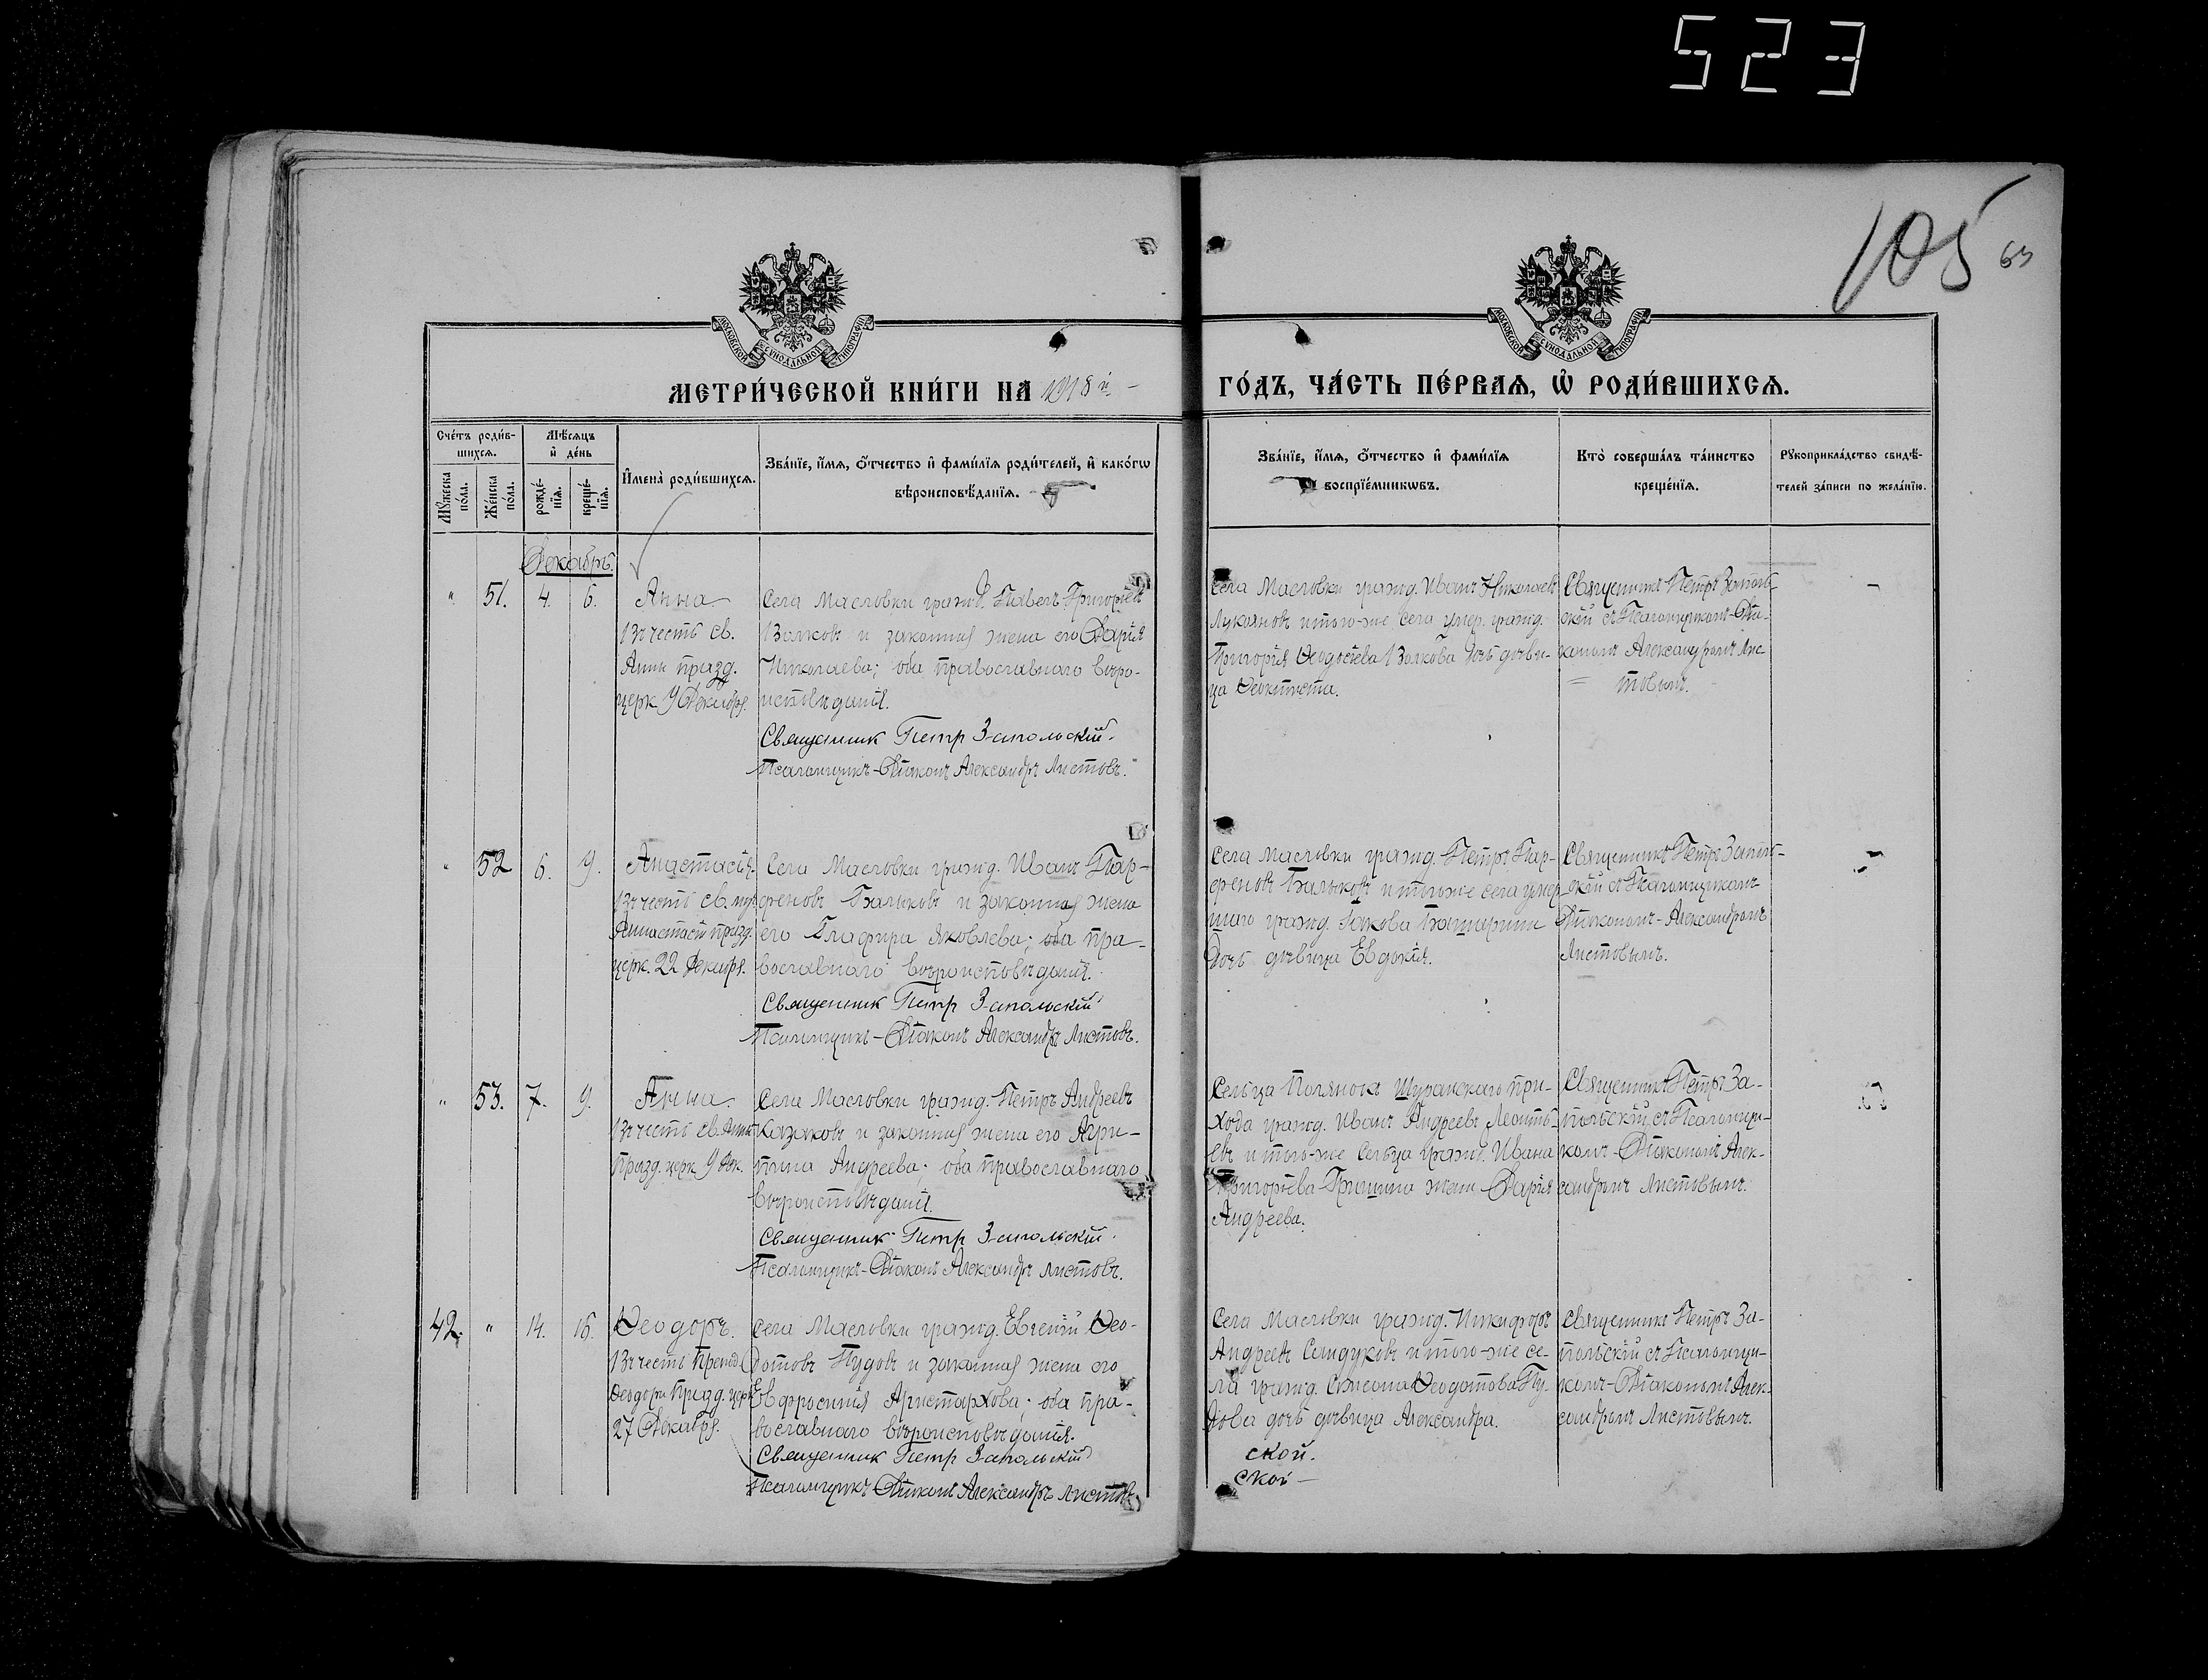 523
105 63
МОСКОВСКОЙ СУНОДАЛЬНОЙ ТИПОГРАФІИ
МОСКОВСКОЙ СУНОДАЛЬНОЙ ТИПОГРАФІИ
МЕТРИ́ЧЕСКОЙ КНИ́ГИ НА 1918 й
ГО́ДЪ, ЧА́СТЬ ПЕ́РВАЯ, Ѡ РОДИ́ВШИХСЯ.
Сче́тъ роди́в-
шихся.
Мѣ́сяцъ
и де́нь
Му́жеска
по́ла.
Же́нска
по́ла.
рожде́-
нїя.
креще́-
нїя.
Имена̀ роди́вшихся.
Зва́нїе, и́мя, о́тчество и фами́лїя роди́телей, и како́гѡ
вѣроисповѣ́данїя.
Зва́нїе, и́мя, о́тчество и фами́лїя
воспрїе́мникѡвъ.
Кто̀ соверша́лъ та́инство
креще́нїя.
Рукоприкла́дство свидѣ́-
телей за́писи по жела́нїю.
Декабрь.
" 51. 4. 6.
Анна
Въ честь св.
Анны празд.
церк 9 Декабря.
Села Масловки гражд. Павелъ Григорьевъ
Волковъ и законная жена его Дарія
Николаева; оба православнаго вѣро-
исповѣданія.
Священник Петр Запольскій.
Псаломщикъ-Діаконъ Александръ Листовъ.
Села Масловки гражд. Иванъ Николаевъ
Лукояновъ и того-же села умер. гражд.
Григорія Ѳеодосіева Волкова дочь дѣви-
ца Ѳеоктиста.
Священникъ Петръ Заполь-
скій съ Псаломщикомъ-Діа-
кономъ Александромъ Лис-
товымъ.
" 52 6. 9.
Анастасія.
Въ честь св. му
Анастасіи празд.
церк. 22 Декабря.
Села Масловки гражд. Иванъ Пар-
феновъ Балыковъ и законная жена
его Глафира Яковлева; оба пра-
вославнаго вѣроисповѣданія.
Священник Петр Запольскій
Псаломщикъ-Діаконъ Александръ Листовъ.
Села Масловки гражд. Петръ Пар-
феновъ Балыковъ и того-же села умер-
шаго гражд. Іакова
дочь дѣвица Евдокія.
Священникъ Петръ Заполь-
скій съ Псаломщикомъ
Діакономъ-Александромъ
Листовымъ.
" 53. 7. 9.
Анна.
Въ честь св. Анны
Празд. церк. 9 Дек.
Села Масловки гражд. Петръ Андреевъ
Казаковъ и законная жена его Агри-
пина Андреева; оба православнаго
вѣроисповѣданія.
Священник Петр Запольскій.
Псаломщикъ-Діаконъ Александръ Листовъ.
Сельца Полянокъ Шуранскаго при-
хода гражд. Иванъ Андреевъ Леонть-
евъ и того-же сельца гражд. Ивана
Григорьева Гришина жена Дарія
Андреева.
Священникъ Петръ За-
польскій съ Псаломщи-
комъ-Діакономъ Алек-
сандромъ Листовымъ.
42. " 14. 16.
Ѳеодоръ.
Въ честь Препод.
Ѳеодора Празд. церк
27 Декабря.
Села Масловки гражд. Евгеній Ѳео-
дотовъ Пудовъ и законная жена его
Евфросинія Аристархова; оба пра-
вославнаго вѣроисповѣданія.
Священник Петр Запольскій
Псаломщикъ Діаконъ Александръ Листовъ.
Села Масловки гражд. Никифоръ
Андреевъ Сандуковъ и того-же се-
ла гражд. Симеона Ѳеодотова Пу-
дова дочь дѣвица Александра.
ской.
ской
Священникъ Петръ За-
польскій съ Псаломщи-
комъ-Діакономъ Алек-
сандромъ Листовымъ.